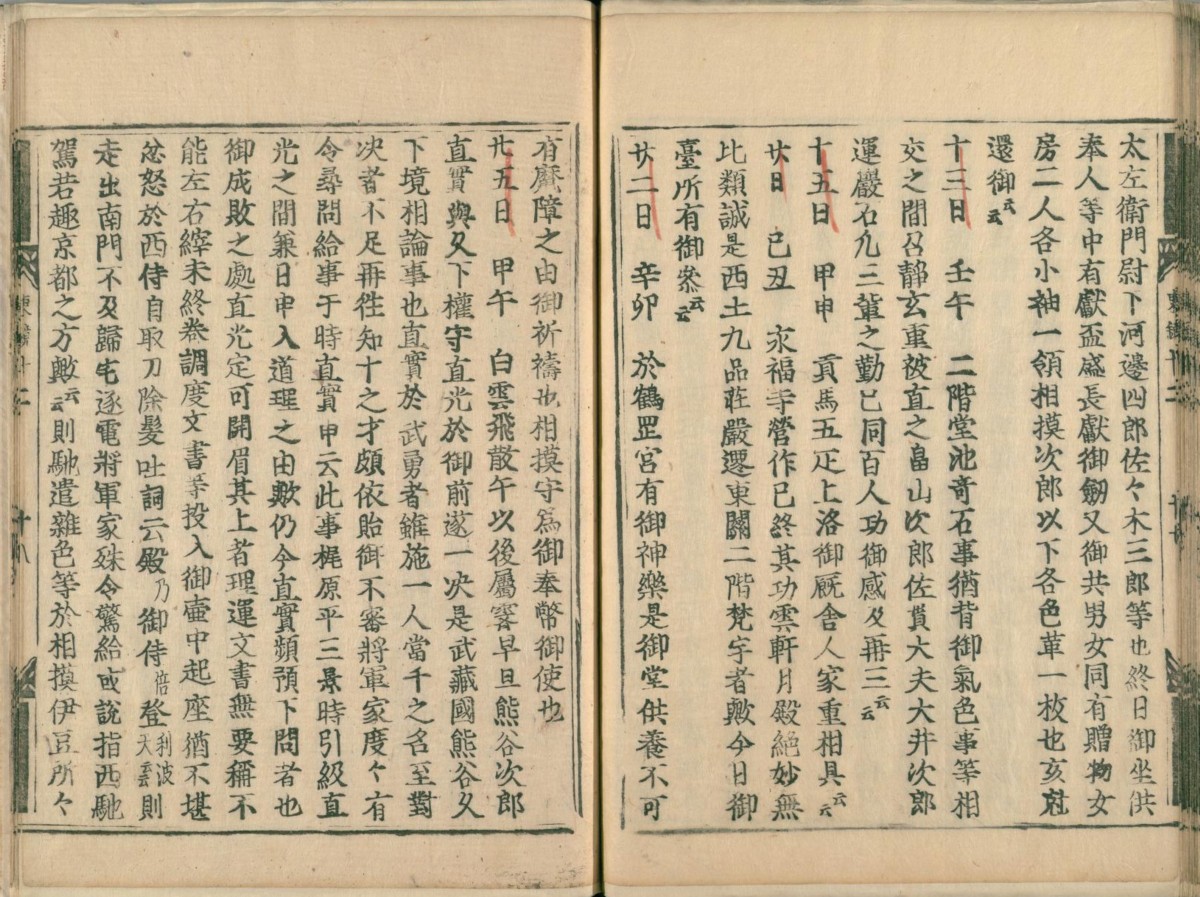 太左衛門尉下河邊四郎佐々木三郎等也終日御坐供
奉人等中有獻盃盛長獻御劔又御共男女同有贈物女
房二人各小袖一領相摸次郎以下各色革一枚也亥尅
還御云云
十三日　壬午　二階堂池奇石事猶背御氣色事等相
交之間召靜玄重被直之畠山次郎佐貫大夫大井次郎
運巖石凡三輩之勤已同百人功御感及再三云云
十五日　甲申　貢馬五疋上洛御厩舎人家重相具云云
廿日　己丑　永福寺營作已終其功雲軒月殿絶妙無
比類誠是西土九品莊嚴遷東關二階梵宇者歟今日御
臺所有御參云云
廿二日　辛卯　於鶴罡宮有御神樂是御堂供養不可
有魔障之由御祈禱也相摸守爲御奉幣御使也
廿五日　甲午　白雲飛散午以後屬霽早旦熊谷次郎
直實與久下權守直光於御前遂一决是武藏國熊谷久
下境相論事也直實於武勇者雖施一人當千之名至對
决者不足再徃知十之才頗依貽御不審將軍家度々有
令尋問給事于時直實申云此事梶原平三景時引級直
光之間兼日申入道理之由歟仍今直實頻預下問者也
御成敗之處直光定可開眉其上者理運文書無要稱不
能左右縡未終卷調度文書等投入御壷中起座猶不堪
忿怒於西侍自取刀除髮吐詞云殿乃御侍倍登利波天云云則
走出南門不及歸宅逐電將軍家殊令驚給或說指西馳
駕若趣京都之方歟云云則馳遣雜色等於相摸伊豆所々
東鏡十二
十八